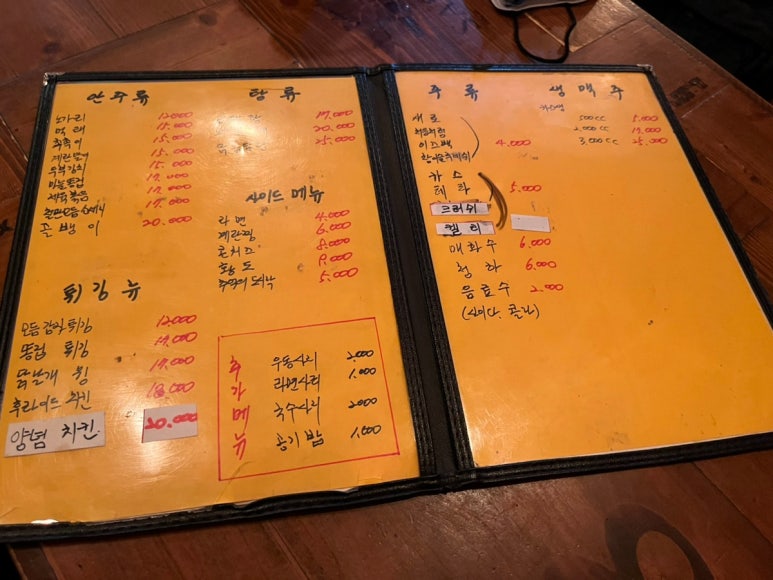 안주류
노가리 12000
먹태 15.000
쥐포이 15.000
계란말이 15.000
두부김치 15.000
마늘똥집 17.000
제육볶음 17.000
17.000
골뱅이 20.000
탕류
17.000
20.000
25.000
사이드 메뉴
라면 4.000
계란찜 6.000
콘치즈 8.000
황도 8.000
추억의 도시락 5.000
튀김류
모듬감자튀김 12000
똥집 튀김 17.000
닭날개 튀김 17.000
후라이드 치킨 18.000
양념 치킨 20.000
추가메뉴
우동사리 2000
라면사리 1.000
국수사리 2000
공기밥 1.000
주류
새로
처음처럼
이즈백 4.000
카스
테라 5.000
크러쉬
켈리
매화수 6.000
청하 6.000
음료수 2.000
(사이다. 콜라)
생맥주
500cc 5.000
2.000cc 19.000
3.000cc 25.000